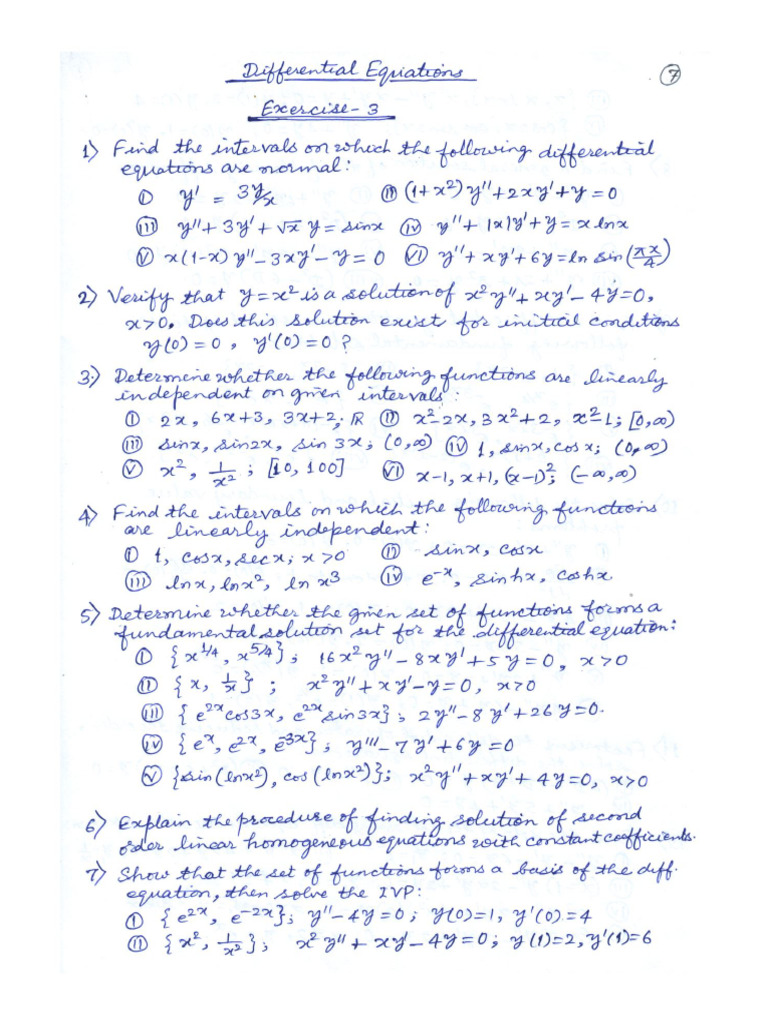 Differential Equations
7
Exercise-3
1) Find the intervals on which the following differential
equations are normal:
(i) y' = 3y/x (ii) (1+x²)y''+2xy'+y=0
(iii) y''+3y'+√x y=sinx (iv) y''+|x|y'+y=x lnx
(v) x(1-x)y''-3xy'-y=0 (vi) y''+xy'+6y=ln sin(πx/4)
2) Verify that y=x² is a solution of x²y''+xy'-4y=0,
x>0. Does this solution exist for initial conditions
y(0)=0, y'(0)=0?
3) Determine whether the following functions are linearly
independent on given intervals:
(i) 2x, 6x+3, 3x+2; R (ii) x²-2x, 3x²+2, x²-1; [0,∞)
(iii) sinx, sin2x, sin 3x; (0,∞) (iv) 1, sinx, cosx; (0,∞)
(v) x², 1/x²; [10, 100] (vi) x-1, x+1, (x-1)²; (-∞,∞)
4) Find the intervals on which the following functions
are linearly independent:
(i) 1, cosx, secx; x>0 (ii) sinx, cosx
(iii) lnx, lnx², ln x³ (iv) e⁻ˣ, sinhx, coshx
5) Determine whether the given set of functions forms a
fundamental solution set for the differential equation:
(i) {x^1/4, x^5/4}; 16x²y''-8xy'+5y=0, x>0
(ii) {x, 1/x}; x²y''+xy'-y=0, x>0
(iii) {e^2x cos3x, e^2x sin3x}; 2y''-8y'+26y=0.
(iv) {e^x, e^2x, e^-3x}; y'''-7y'+6y=0
(v) {sin(lnx²), cos(lnx²)}; x²y''+xy'+4y=0, x>0
6) Explain the procedure of finding solution of second
order linear homogeneous equations with constant coefficients.
7) Show that the set of functions forms a basis of the diff.
equation, then solve the IVP:
(i) {e^2x, e^-2x}; y''-4y=0; y(0)=1, y'(0)=4
(ii) {x², 1/x²}; x²y''+xy'-4y=0; y(1)=2, y'(1)=6